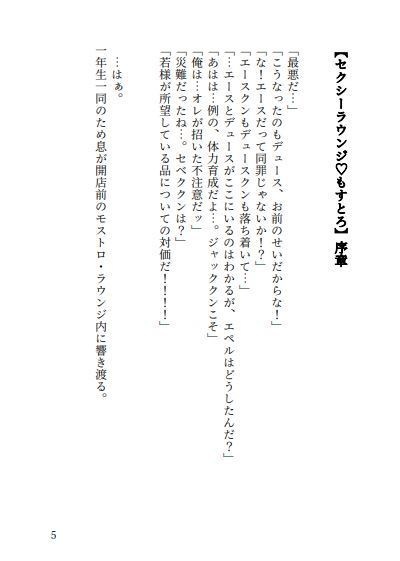 【セクシーラウンジ♡もすとろ】序章
「最悪だ…」
「こうなったのもデュース、お前のせいだからな！」
「な！エースだって同罪じゃないか！？」
「エースクンもデュースクンも落ち着いて…」
「…エースとデュースがここにいるのはわかるが、エペルはどうしたんだ？」
「あはは…例の、体力育成だよ…。ジャッククンこそ」
「俺は…オレが招いた不注意だッ」
「災難だったね…。セベククンは？」
「若様が所望している品についての対価だ！！！！」
…はぁ。
一年生一同のため息が開店前のモストロ・ラウンジ内に響き渡る。
5